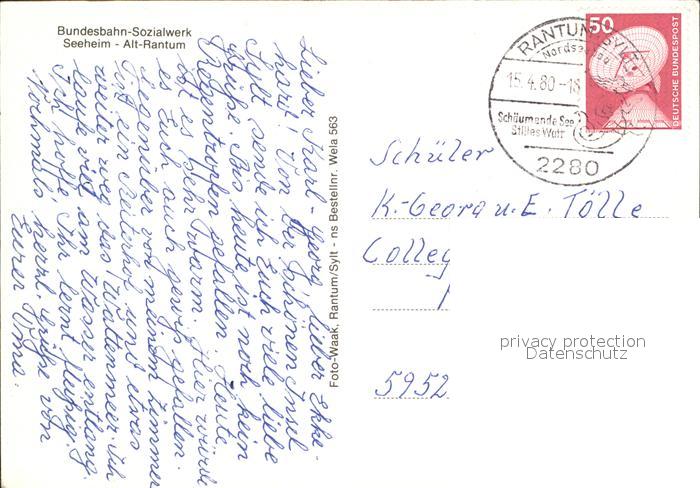 Bundesbahn-Sozialwerk
Seeheim - Alt-Rantum
Lieber Karl-Georg, lieber Ekke-
hard! Von der schönen Insel
Sylt sende ich Euch viele liebe
Grüße. Bis heute ist noch kein
Regentropfen gefallen. Heute
ist es sehr warm. Hier würde
es Euch auch gewiß gefallen.
Gegenüber von meinem Zimmer
ist ein Reiterhof und etwas
weiter weg das Wattenmeer. Ich
laufe viel am Wasser entlang.
Ich hoffe, Ihr lernt fleißig.
Nochmals herzl. Grüße von
Eurer Oma.
Foto-Waak, Rantum/Sylt - ns Bestellnr. Wela 563
RANTUM, SYLT
Nordseebad
15.4.80-18
Schäumende See
Stilles Watt
2280
50
DEUTSCHE BUNDESPOST
Schüler
K.-Georg u. E. Tölle
Colleg
5952
privacy protection
Datenschutz